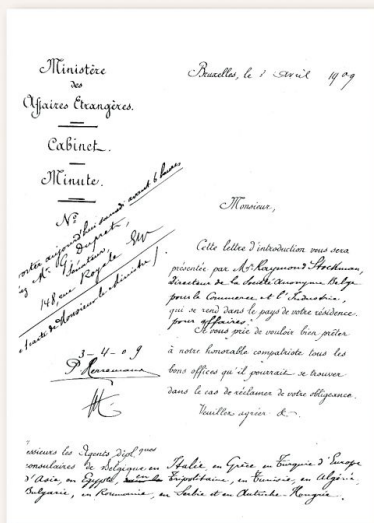 Ministère
des
Affaires Étrangères.
Cabinet.
Minute.
N°
Bruxelles, le 3 avril 1909
porter aujourd'hui samedi avant 6 heures
Mr. G. Dupret,
Sénateur,
148, rue Royale
carte de Monsieur le Ministre
3-4-09
Monsieur,
Cette lettre d'introduction vous sera
présentée par Mr. Raymond Stockman,
directeur de la Société anonyme Belge
pour le Commerce et l'Industrie,
qui se rend dans le pays de votre résidence
pour affaires.
Je vous prie de vouloir bien prêter
à notre honorable compatriote tous les
bons offices qu'il pourrait se trouver
dans le cas de réclamer de votre obligeance.
Veuillez agréer &.
essieurs les Agents dipl.ques
consulaires de Belgique en Italie, en Grèce en Turquie d'Europe
d'Asie, en Egypte, en Tripolitaine, en Tunisie, en Algérie,
Bulgarie, en Roumanie, en Serbie et en Autriche-Hongrie.